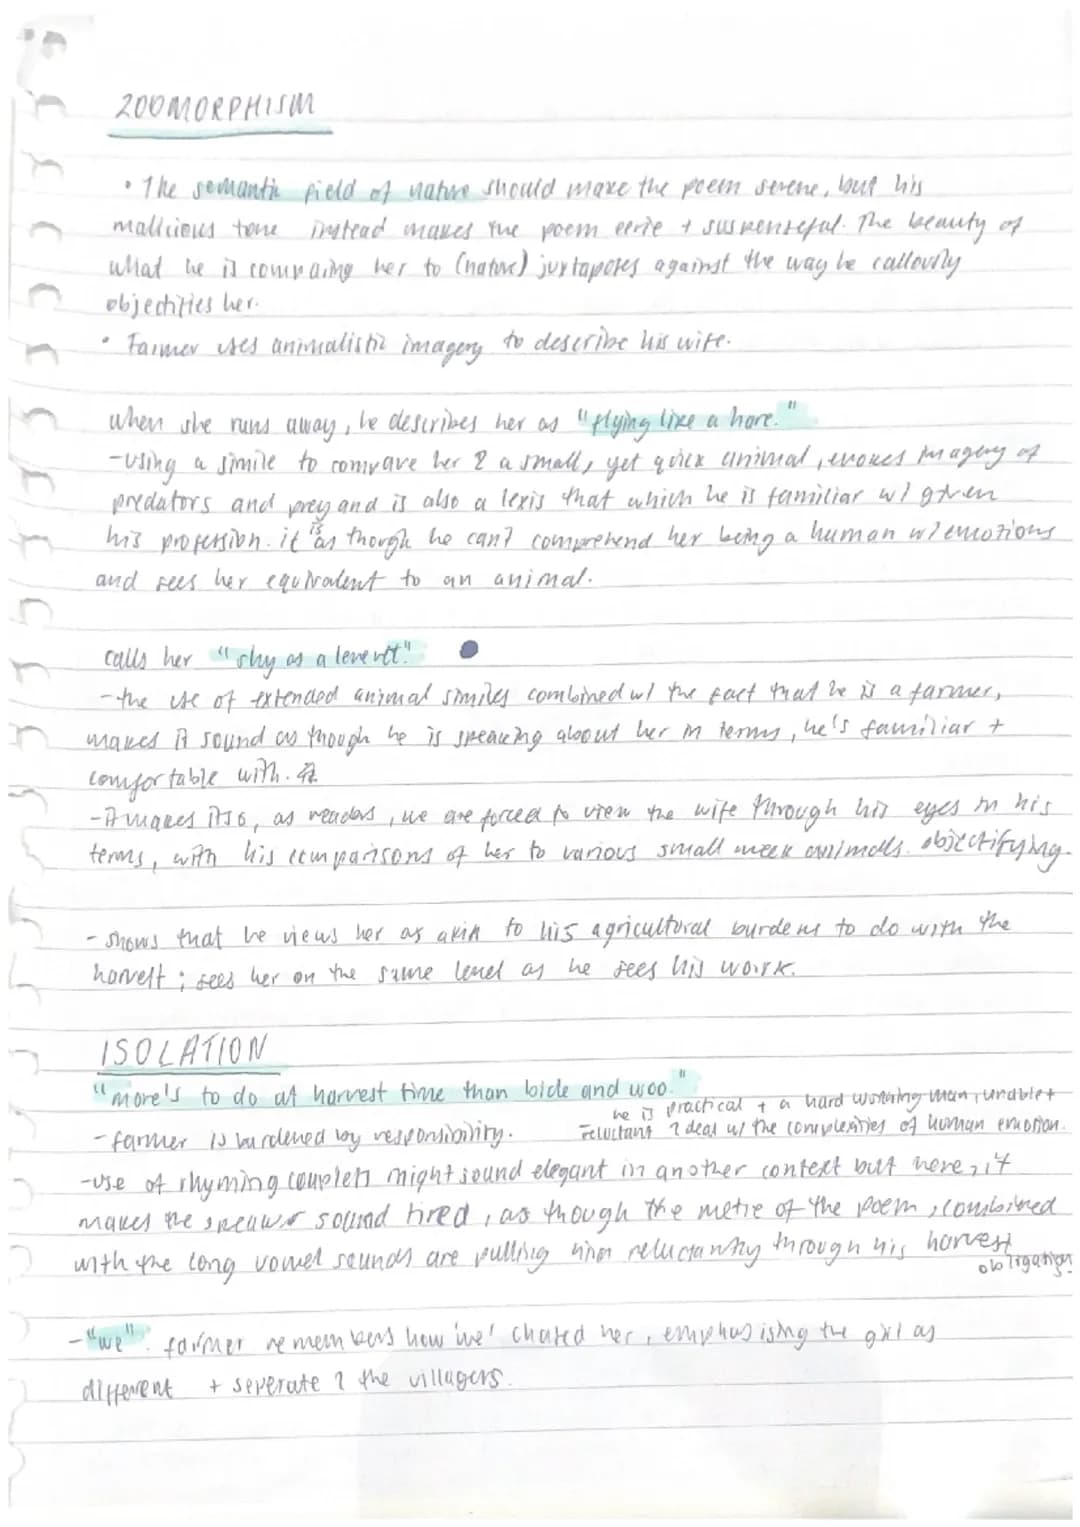 ZOOMORPHISM
• The semantic field of nature should make the poem serene, but his
malicious tone instead makes the poem eerie + suspenseful. The beauty of
what he is comparing her to (nature) juxtaposes against the way he callously
objectifies her.
• Farmer uses animalistic imagery to describe his wife.
when she runs away, he describes her as "flying like a hare."
-using a simile to compare her 2 a small, yet quick animal, evokes imagery of
predators and prey and is also a lexis that which he is familiar w/ given
his profession. it is as though he can't comprehend her being a human w/ emotions
and sees her equivalent to an animal.
calls her "shy as a leverett."
-the use of extended animal similes combined w/ the fact that he is a farmer,
makes it sound as though he is speaking about her in terms, he's familiar +
comfortable with.
-It makes it so, as readers, we are forced to view the wife through his eyes in his
terms, with his comparisons of her to various small meek animals. objectifying.
- shows that he views her as akin to his agricultural burdens to do with the
harvest; sees her on the same level as he sees his work.
ISOLATION
"more's to do at harvest time than bide and woo."
he is practical + a hard working man, unable +
-farmer is burdened by responsibility. reluctant 2 deal w/ the complexities of human emotion.
-use of rhyming couplets might sound elegant in another context but here, it
makes the speaker sound tired, as though the metre of the poem, combined
with the long vowel sounds are pulling him reluctantly through his harvest
obligation
-"we". farmer remembers how 'we' chased her, emphasising the girl as
different + seperate 2 the villagers.